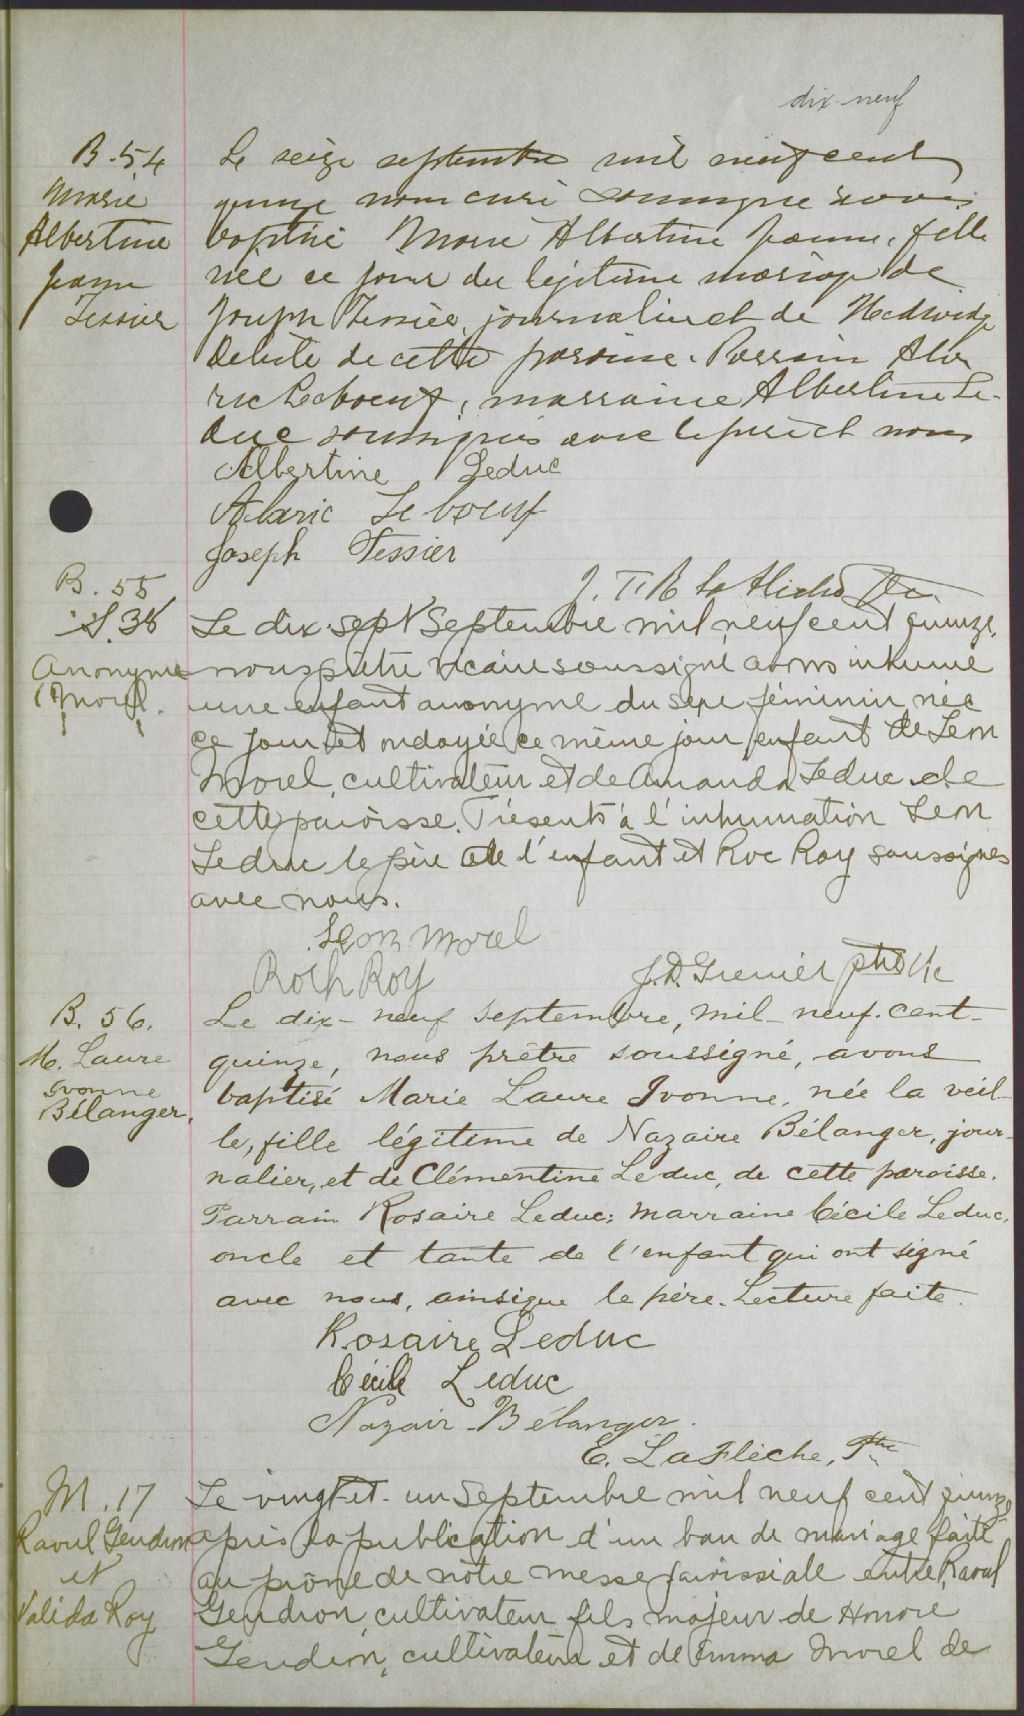 dix-neuf
B. 54
Marie
Albertine
Jeanne
Tessier
Le seize septembre mil neuf cent
quinze nous curé soussigné avons
baptisé Marie Albertine Jeanne, fille
née ce jour du légitime mariage de
Joseph Tessier, journalier et de Hedwidge
de cette paroisse. Parrain Alba
ric Leboeuf, marraine Albertine Le-
duc soussignés avec le père et nous
Albertine Leduc
Albaric Leboeuf
Joseph Tessier
B. 55
S. 38
Anonyme
(Morel.
Le dix-sept Septembre mil neuf cent quinze,
nous prêtre vicaire soussigné avons inhumé
une enfant anonyme du sexe féminin née
ce jour et ondoyée ce même jour enfant de Leon
Morel, cultivateur et de Amanda Leduc de
cette paroisse. Présents à l'inhumation Leon
Leduc le père de l'enfant et Roc Roy soussignés
avec nous.
Leon Morel
Roch Roy
J.D. Grenier ptre Vic
B. 56.
M. Laure
Ivonne
Bélanger.
Le dix-neuf septembre, mil-neuf-cent-
quinze, nous prêtre soussigné, avons
baptisé Marie Laure Ivonne, née la veil-
le, fille légitime de Nazaire Bélanger, jour-
nalier, et de Clémentine Leduc, de cette paroisse.
Parrain Rosaire Leduc; marraine Cécile Leduc,
oncle et tante de l'enfant qui ont signé
avec nous, ainsique le père. Lecture faite.
Rosaire Leduc
Cécile Leduc
Nazair Bélanger.
E. LaFlèche, Ptre
M. 17
Raoul Gendron
et
Valida Roy
Le vingt-et-un Septembre mil neuf cent quinze
après la publication d'un ban de mariage faite
au prône de notre messe paroissiale entre Raoul
Gendron, cultivateur fils majeur de Honoré
Gendron, cultivateur et de Emma Morel de